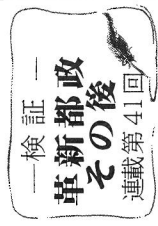 ―検証―
革新都政
その後
連載第41回